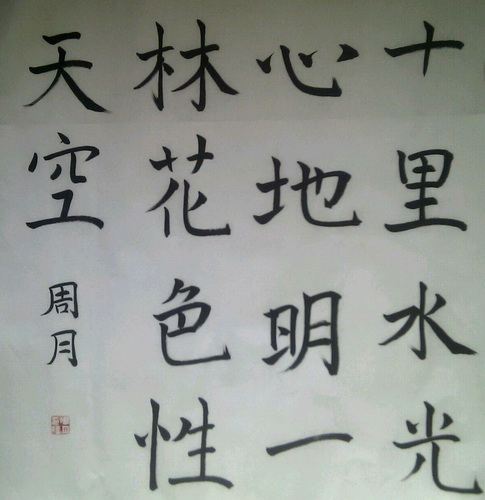 十里水光
心地明一
林花色性
天空
周月